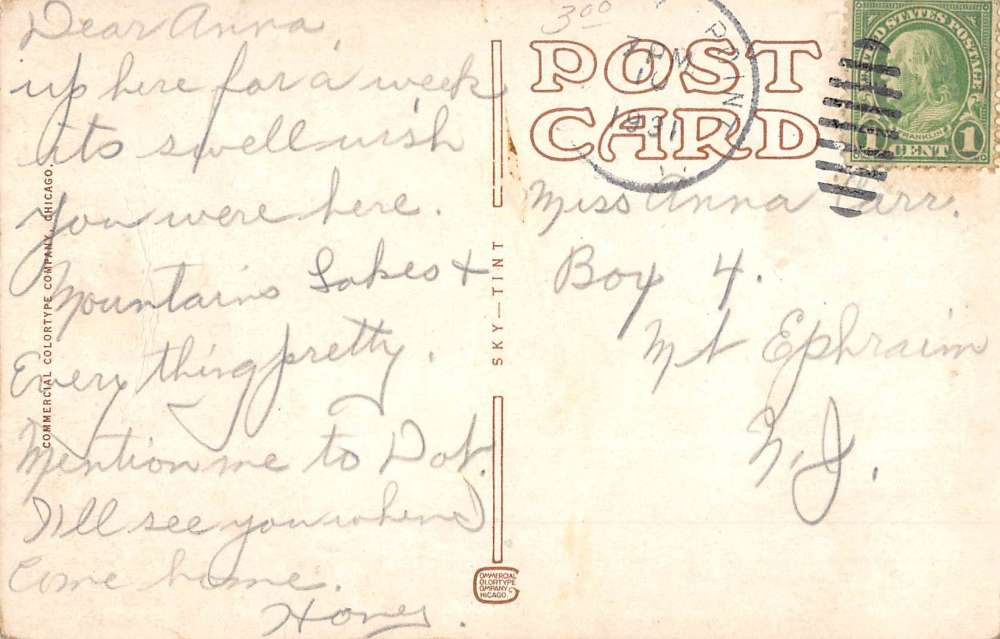 Dear Anna,
up here for a week
its swell wish
you were here.
Mountains Lakes +
Every thing pretty.
Mention me to Dot.
I'll see you when I
come home.
COMMERCIAL COLORTYPE COMPANY, CHICAGO.
SKY—TINT
COMMERCIAL
COLORTYPE
COMPANY
CHICAGO.
3 00
POST
CARD
7 PM
10
1931
UNITED STATES POSTAGE
FRANKLIN
1 CENT 1
Miss Anna Carr.
Box 4.
Mt Ephraim
N.J.